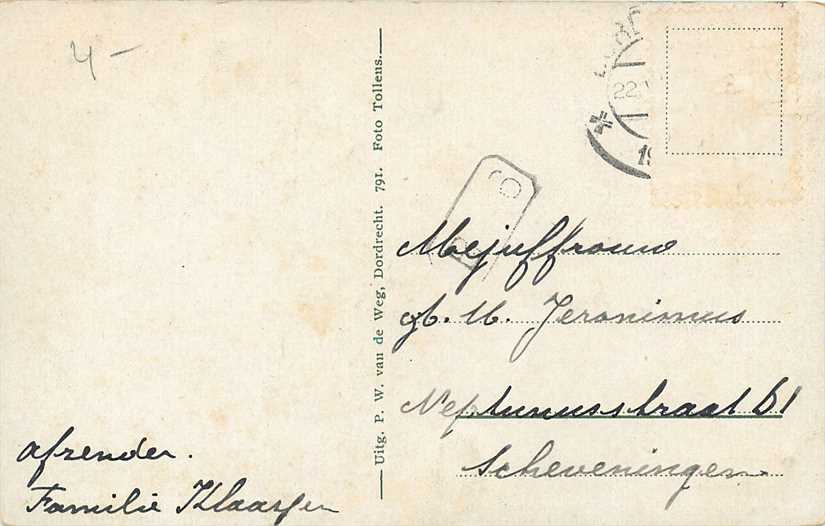 4-
22
19
Uitg. P. W. van de Weg, Dordrecht. 791. Foto Tollens.
Mejuffrouw
M. Jeronimus
Neptunusstraat 61
Scheveningen
afzender.
Familie Klaassen